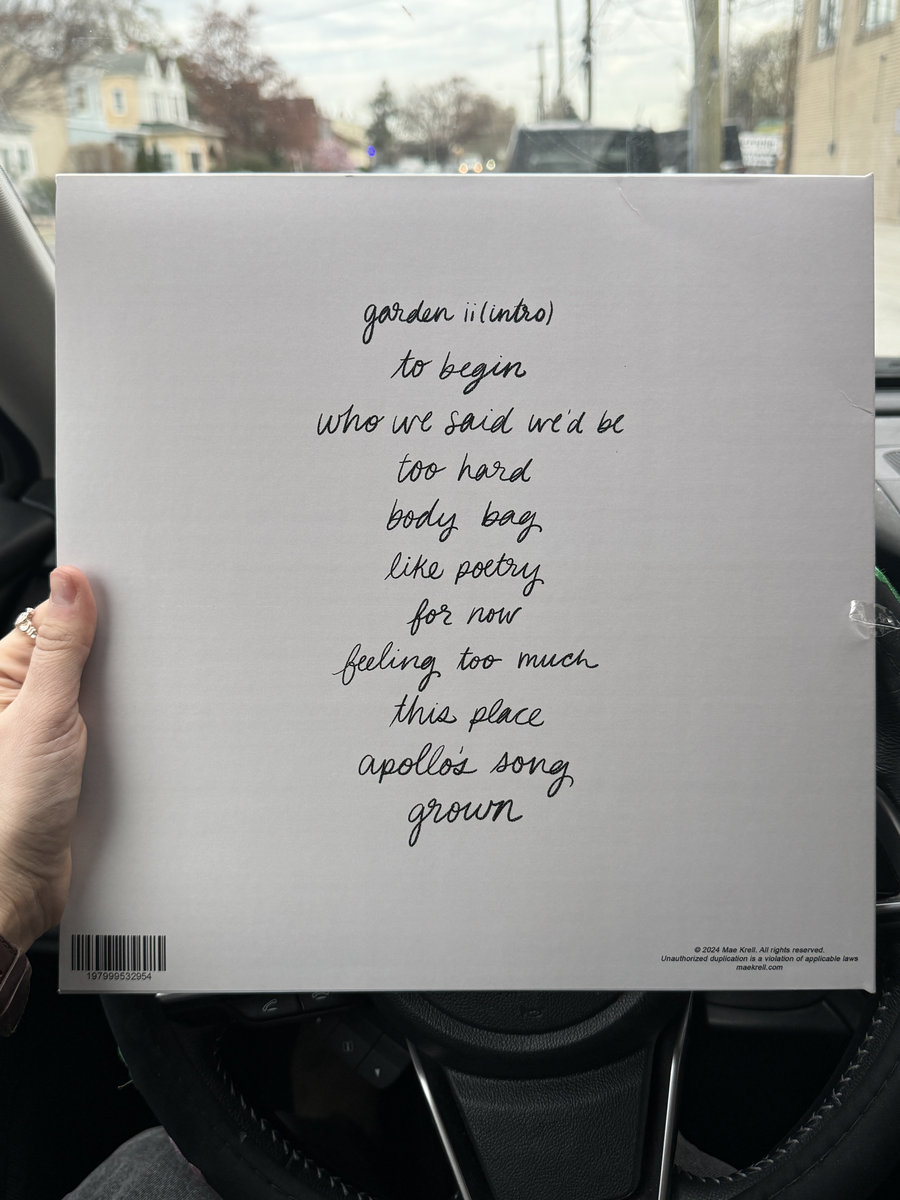 garden ii (intro)
to begin
who we said we'd be
too hard
body bag
like poetry
for now
feeling too much
this place
apollo's song
grown
197999532954
© 2024 Mae Krell. All rights reserved.
Unauthorized duplication is a violation of applicable laws
maekrell.com